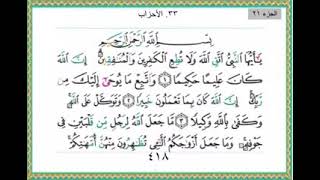 الجزء ٢١
٣٣. الأحزاب
بِسْمِ اللَّهِ الرَّحْمَٰنِ الرَّحِيمِ
يَا أَيُّهَا النَّبِيُّ اتَّقِ اللَّهَ وَلَا تُطِعِ الْكَافِرِينَ وَالْمُنَافِقِينَ إِنَّ اللَّهَ
كَانَ عَلِيمًا حَكِيمًا ١ وَاتَّبِعْ مَا يُوحَىٰ إِلَيْكَ مِن
رَّبِّكَ إِنَّ اللَّهَ كَانَ بِمَا تَعْمَلُونَ خَبِيرًا ٢ وَتَوَكَّلْ عَلَى اللَّهِ
وَكَفَىٰ بِاللَّهِ وَكِيلًا ٣ مَّا جَعَلَ اللَّهُ لِرَجُلٍ مِّن قَلْبَيْنِ فِي
جَوْفِهِ وَمَا جَعَلَ أَزْوَاجَكُمُ اللَّائِي تُظَاهِرُونَ مِنْهُنَّ أُمَّهَاتِكُمْ
٤١٨